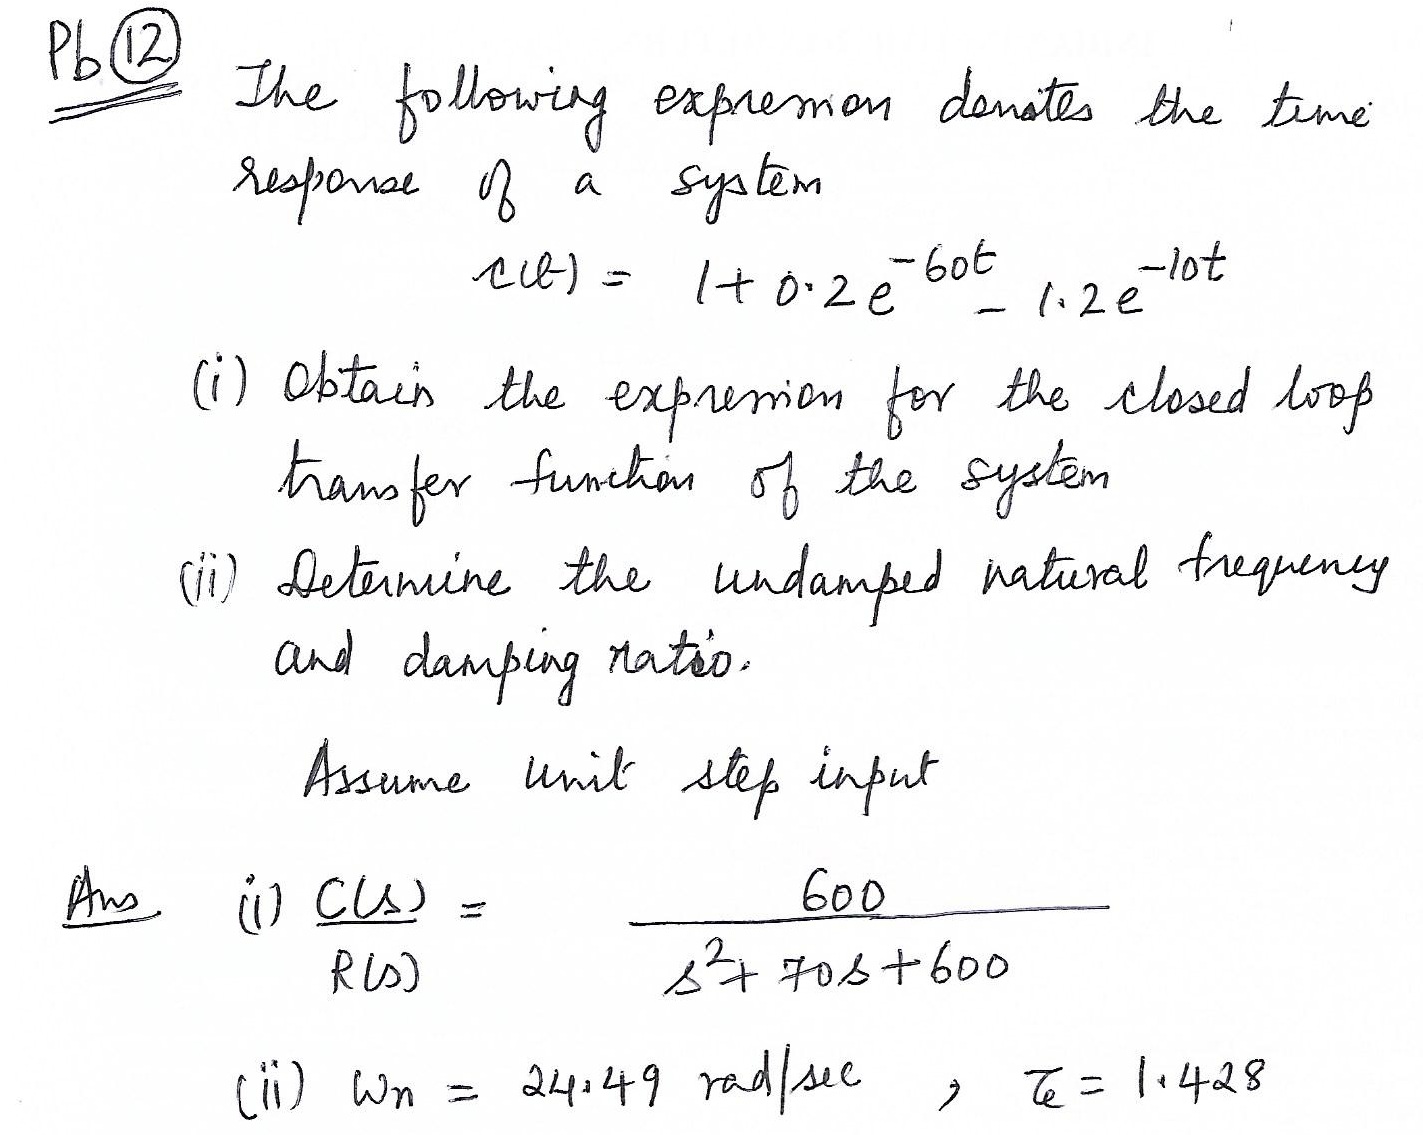 Pb 12
The following expression denotes the time
response of a system
c(t) = 1 + 0.2e^-60t - 1.2e^-10t
(i) Obtain the expression for the closed loop
transfer function of the system
(ii) Determine the undamped natural frequency
and damping ratio.
Assume unit step input
Ans (i) C(s)/R(s) = 600/(s² + 70s + 600)
(ii) Wn = 24.49 rad/sec , ξ = 1.428